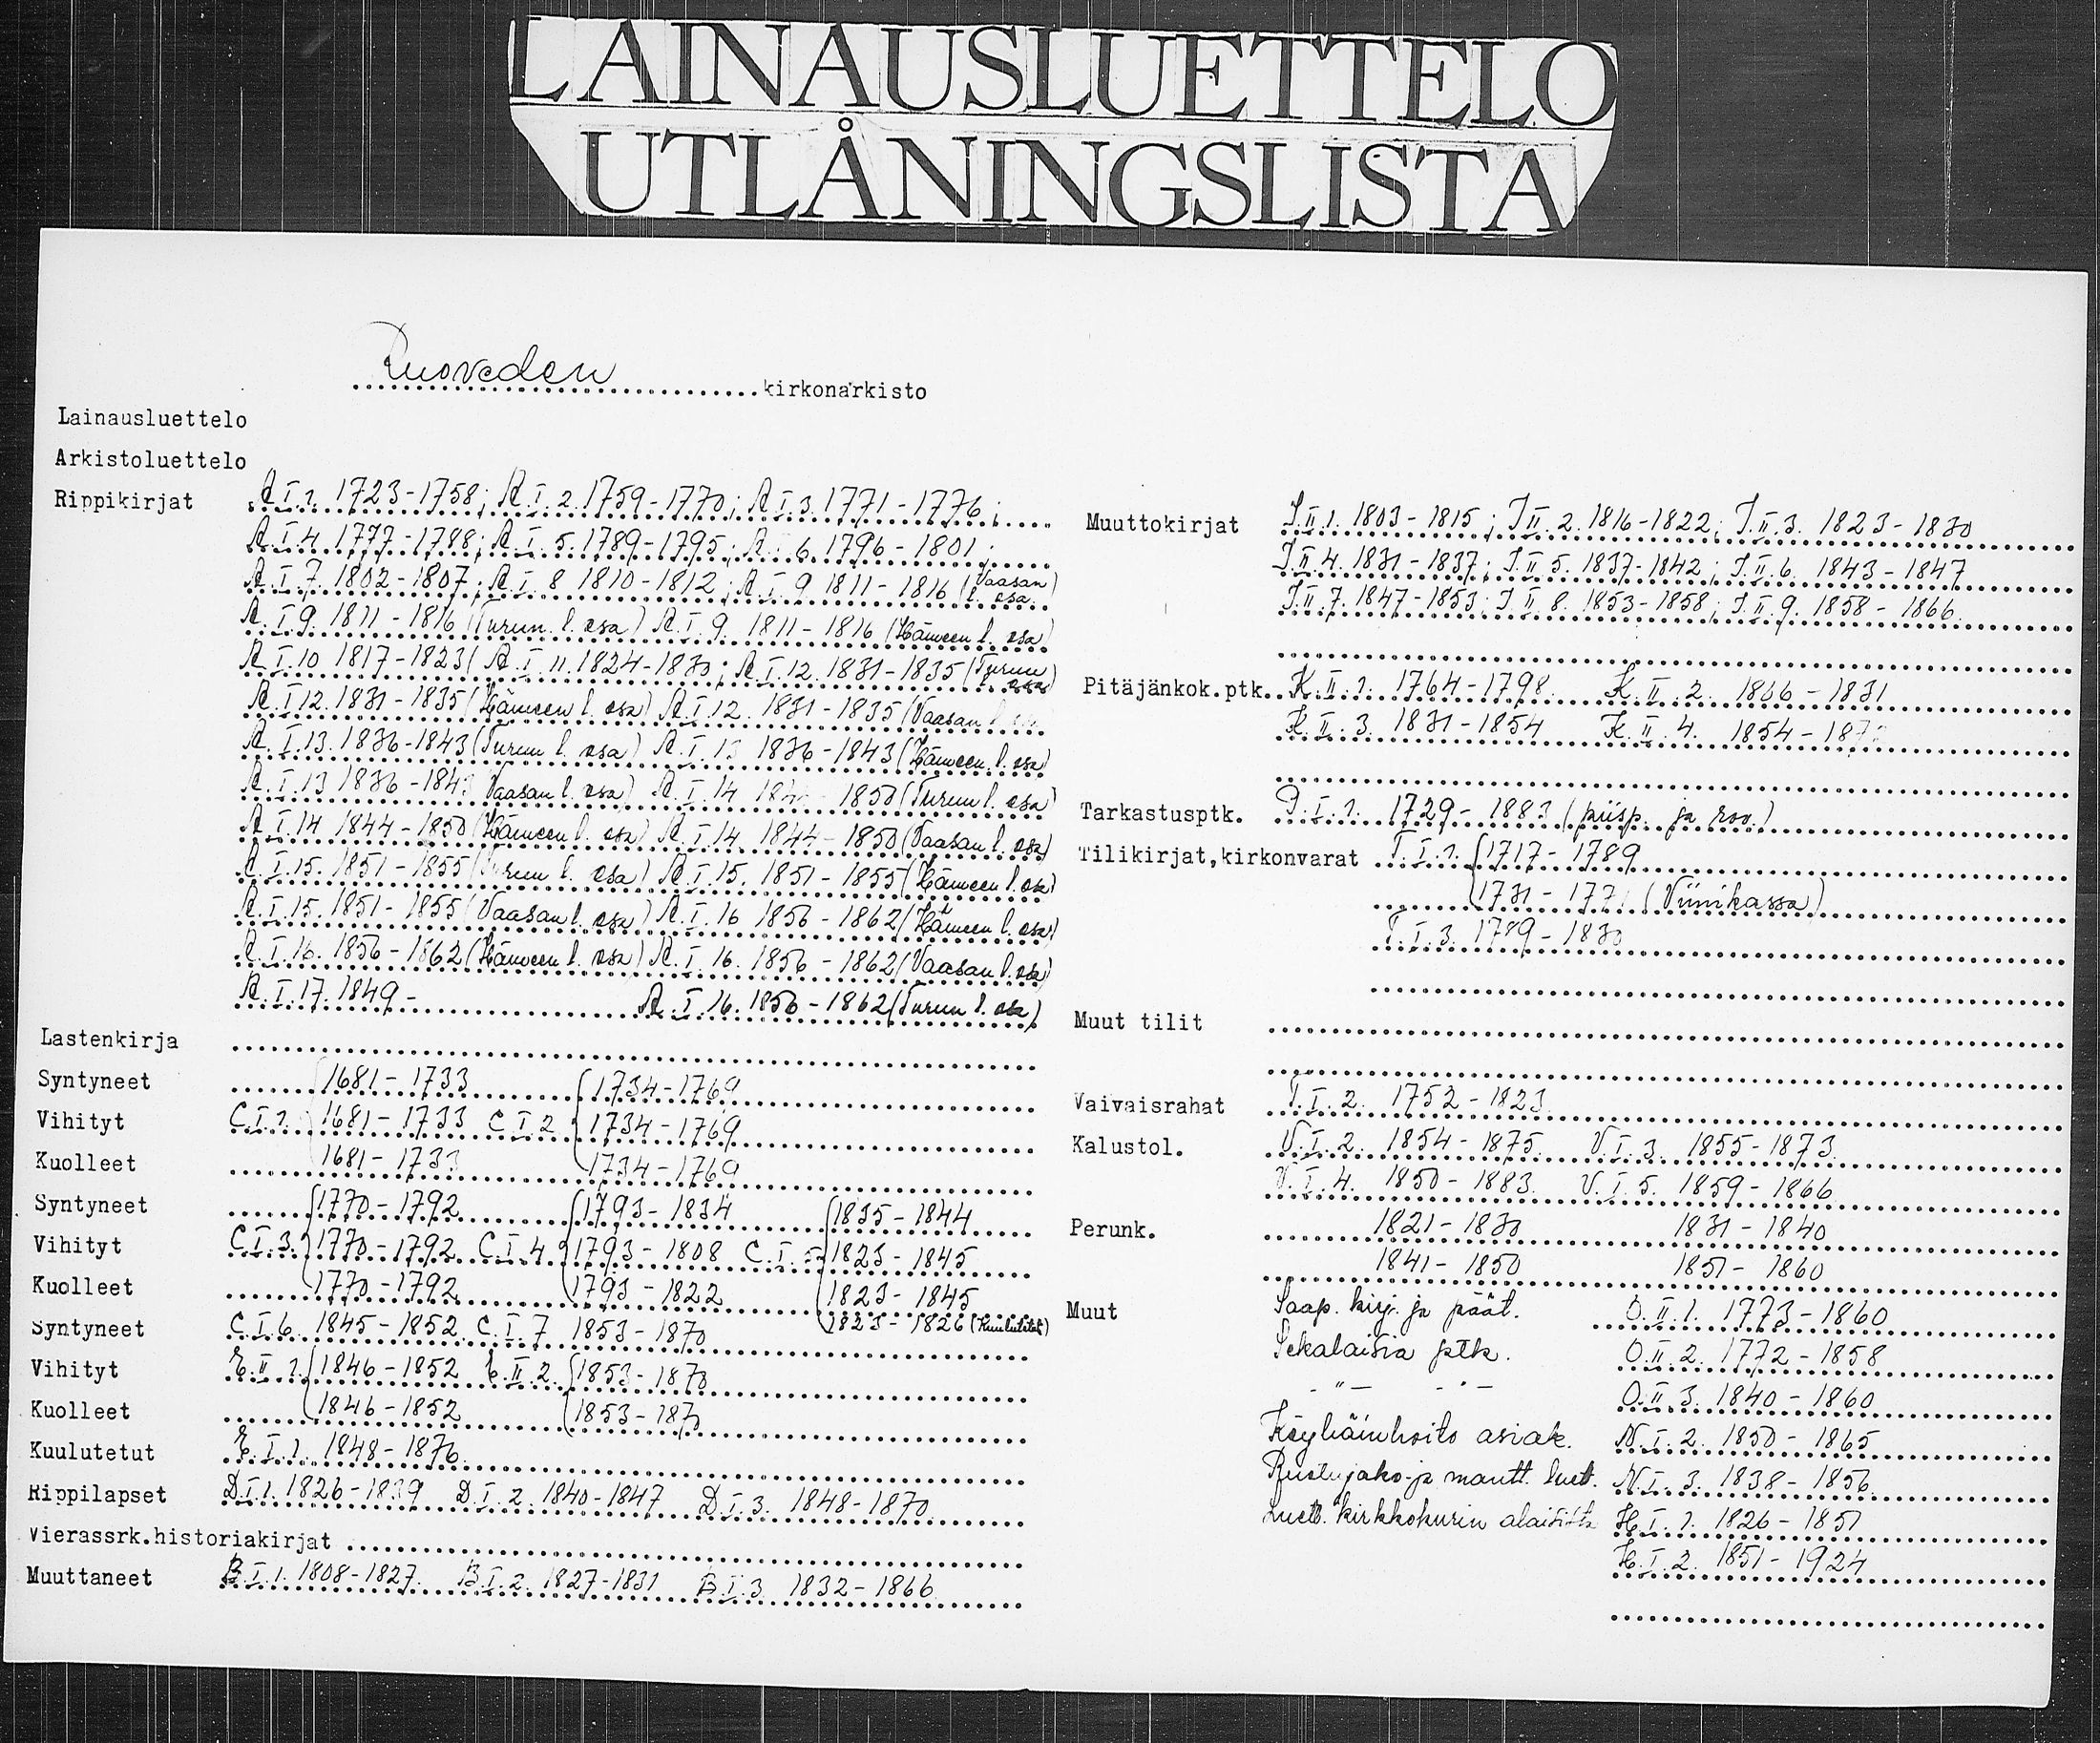 LAINAUSLUETTELO
UTLÅNINGSLISTA
Ruoveden kirkonarkisto
Lainausluettelo
Arkistoluettelo
Rippikirjat A.I.1. 1723-1758; A.I.2. 1759-1770; A.I.3. 1771-1776;
A.I.4. 1777-1788; A.I.5. 1789-1795; A. 6. 1796-1801;
A.I.7. 1802-1807; A.I.8 1810-1812; A.I.9 1811-1816 (Vaasan l. osa)
A.I.9. 1811-1816 (Turun l. osa) A.I.9. 1811-1816 (Hämeen l. osa)
A.I.10 1817-1823( A.I.11. 1824-1830; A.I.12. 1831-1835 (Turun osa)
A.I.12. 1831-1835 (Hämeen l. osa) A.I.12. 1831-1835 (Vaasan
A.I.13. 1836-1843 (Turun l. osa) A.I.13 1836-1843 (Hämeen l. osa)
A.I.13 1836-1843 Vaasan l. osa) A.I.14 1850 (Turun l. osa)
A.I.14 1844-1850 (Hämeen l. osa) A.I.14. 1844-1850 (Vaasan l. osa)
A.I.15. 1851-1855 (Turun l. osa) A.I.15. 1851-1855 (Hämeen l. osa)
A.I.15. 1851-1855 (Vaasan l. osa) A.I.16 1856-1862 (Hämeen l. osa)
A.I.16. 1856-1862 (Hämeen l. osa) A.I.16. 1856-1862 (Vaasan l. osa)
A.I.17. 1849- A.I.16. 1856-1862 (Turun l. osa)
Lastenkirja
Syntyneet 1681-1733 1734-1769
Vihityt C.I.1. 1681-1733 C.I.2 1734-1769
Kuolleet 1681-1733 1734-1769
Syntyneet 1770-1792 1793-1834 1835-1844
Vihityt C.I.3. 1770-1792 C.I.4. 1793-1808 C.I.5 1823-1845
Kuolleet 1770-1792 1793-1822 1823-1845
1823-1826 (Kuulutetut)
Syntyneet C.I.6. 1845-1852. C.I.7 1853-1870
Vihityt E.II.1. 1846-1852 E.II.2. 1853-1870
Kuolleet 1846-1852 1853-1870
Kuulutetut E.I.1. 1848-1876
Rippilapset D.I.1. 1826-1839 D.I.2. 1840-1847 D.I.3. 1848-1870
Vierassrk.historiakirjat
Muuttaneet B.I.1. 1808-1827. B.I.2. 1827-1831 B.I.3. 1832-1866
Muuttokirjat J.II.1. 1803-1815; J.II.2. 1816-1822; J.II.3. 1823-1830
J.II.4. 1831-1837; J.II.5. 1837-1842; J.II.6. 1843-1847
J.II.7. 1847-1853; J.II.8. 1853-1858; J.II.9. 1858-1866
Pitäjänkok.ptk. K.II.1. 1764-1798. K.II.2. 1806-1831
K.II.3. 1831-1854 K.II.4. 1854-187
Tarkastusptk. P.I.1. 1729-1883 (piisp. ja rov.)
Tilikirjat,kirkonvarat T.I.1. 1717-1789
1731-1771 (Viinikassa)
T.I.3. 1789-1830
Muut tilit
Vaivaisrahat T.I.2. 1752-1823
Kalustol. V.I.2. 1854-1875. V.I.3. 1855-1873
V.I.4. 1850-1883. V.I.5. 1859-1866
Perunk. 1821-1830 1831-1840
1841-1850 1851-1860
Muut Saap. kirj. ja päät. O.II.1. 1773-1860
Sekalaisia ptk. O.II.2. 1772-1858
-"- -"- O.II.3. 1840-1860
Köyhäinhoito asiak. N.I.2. 1850-1865
Ruotujako-ja mantt. luett. N.I.3. 1838-1856
Luett. kirkkokurin alaisista H.I.1. 1826-1851
H.I.2. 1851-1924